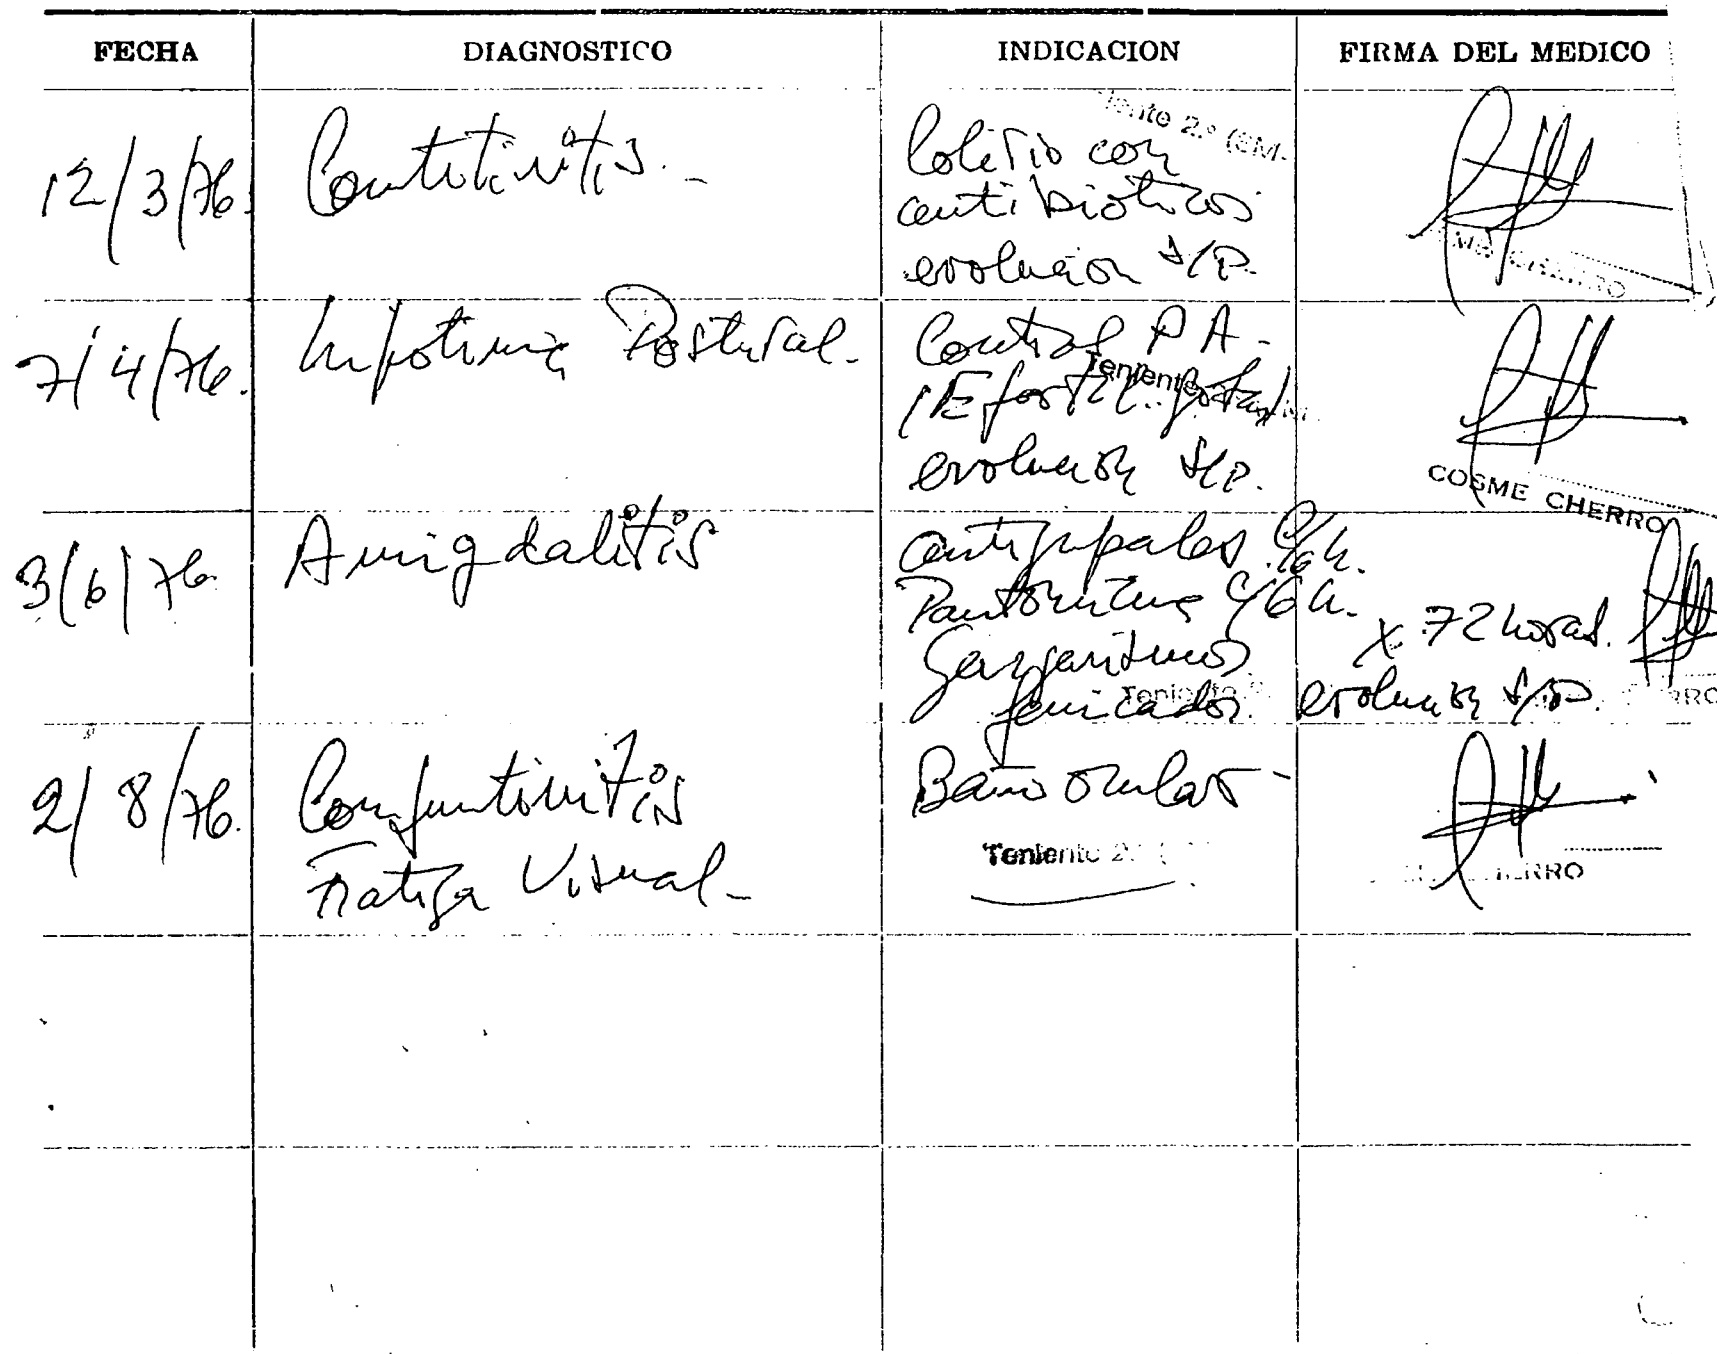 FECHA DIAGNOSTICO INDICACION FIRMA DEL MEDICO
12/3/76. Conjuntivitis. - Colirio con
antibióticos
evolución s/p.
Teniente 2.º (EM-
CHERRO
7/4/76. Lipotimia Postural. Control P A -
Efortil
evolución s/p.
Teniente
COSME CHERRO
3/6/76 Amigdalitis antigripales c/6h.
c/6h.
Gargarismos
fenicados.
x 72 horas.
evolución s/p.
Teniente 2.
2/8/76. Conjuntivitis Baño ocular -
Fatiga Visual -
Teniente 2.
CHERRO